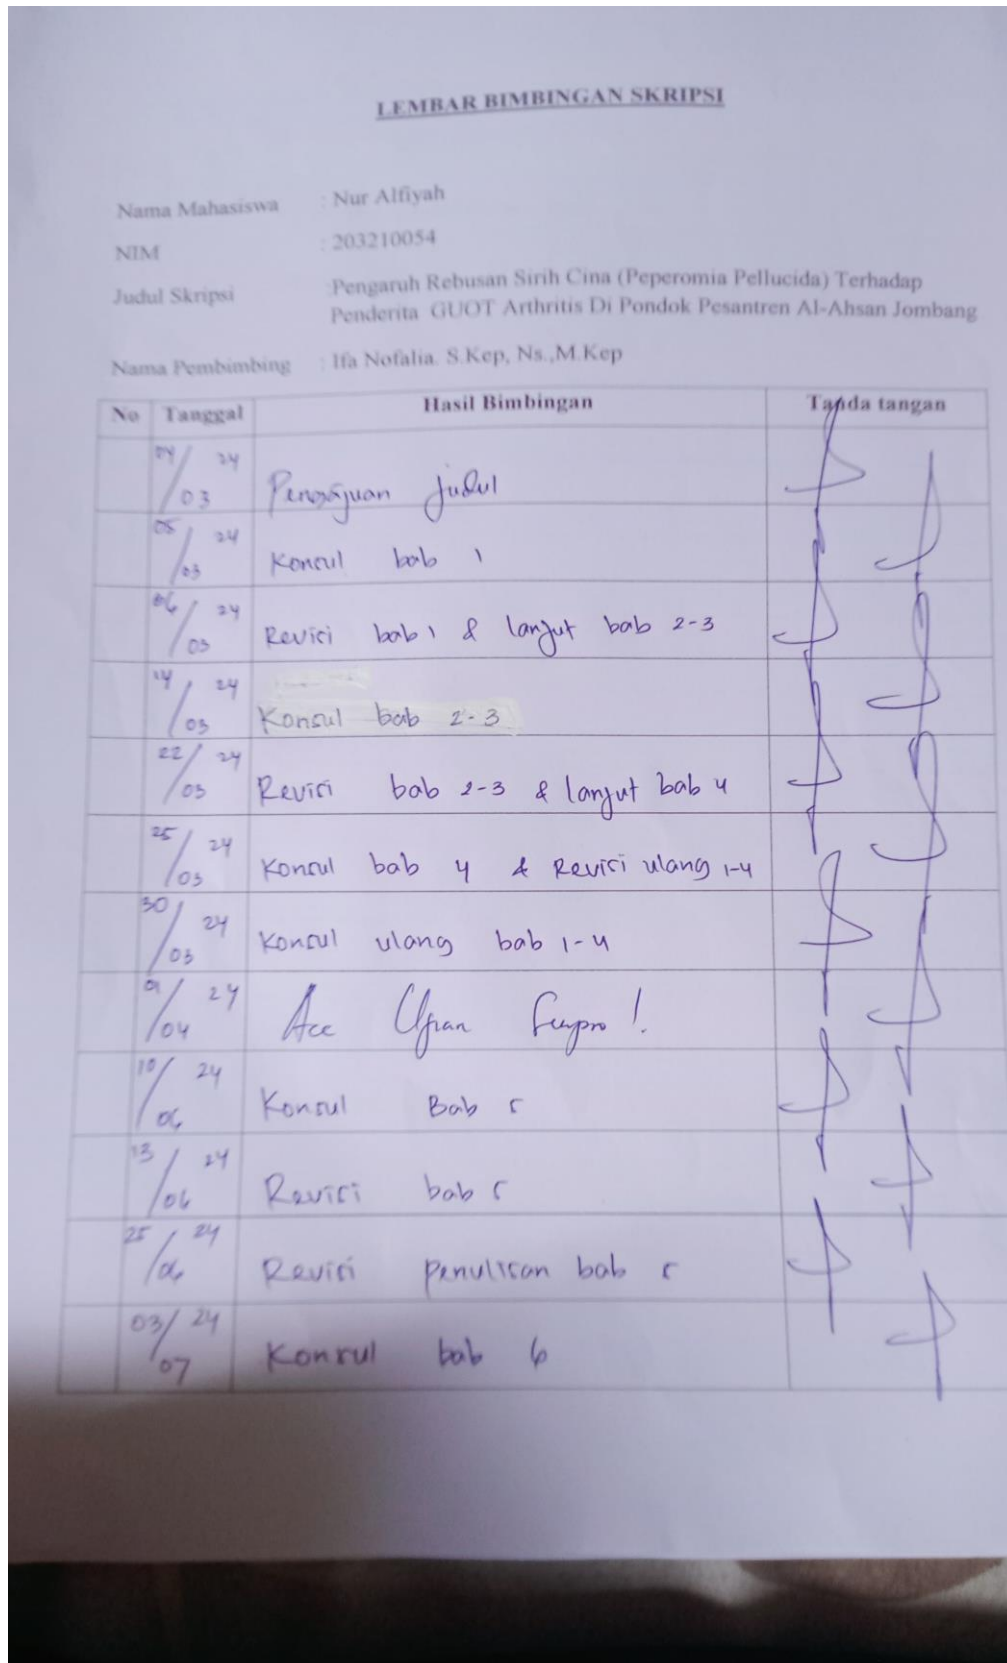 LEMBAR BIMBINGAN SKRIPSI
Nama Mahasiswa : Nur Alfiyah
NIM : 203210054
Judul Skripsi :Pengaruh Rebusan Sirih Cina (Peperomia Pellucida) Terhadap
Penderita GUOT Arthritis Di Pondok Pesantren Al-Ahsan Jombang
Nama Pembimbing : Ifa Nofalia. S.Kep, Ns.,M.Kep
No Tanggal Hasil Bimbingan Tanda tangan
04/03 24 Pengajuan judul
05/03 24 Konsul bab 1
06/03 24 Revisi bab 1 & lanjut bab 2-3
14/03 24 Konsul bab 2-3
22/03 24 Revisi bab 2-3 & lanjut bab 4
25/03 24 Konsul bab 4 & Revisi ulang 1-4
30/03 24 Konsul ulang bab 1-4
/04 24 Acc Ujian Sempro !.
10/06 24 Konsul Bab 5
13/06 24 Revisi bab 5
25/06 24 Revisi penulisan bab 5
03/07 24 Konsul bab 6